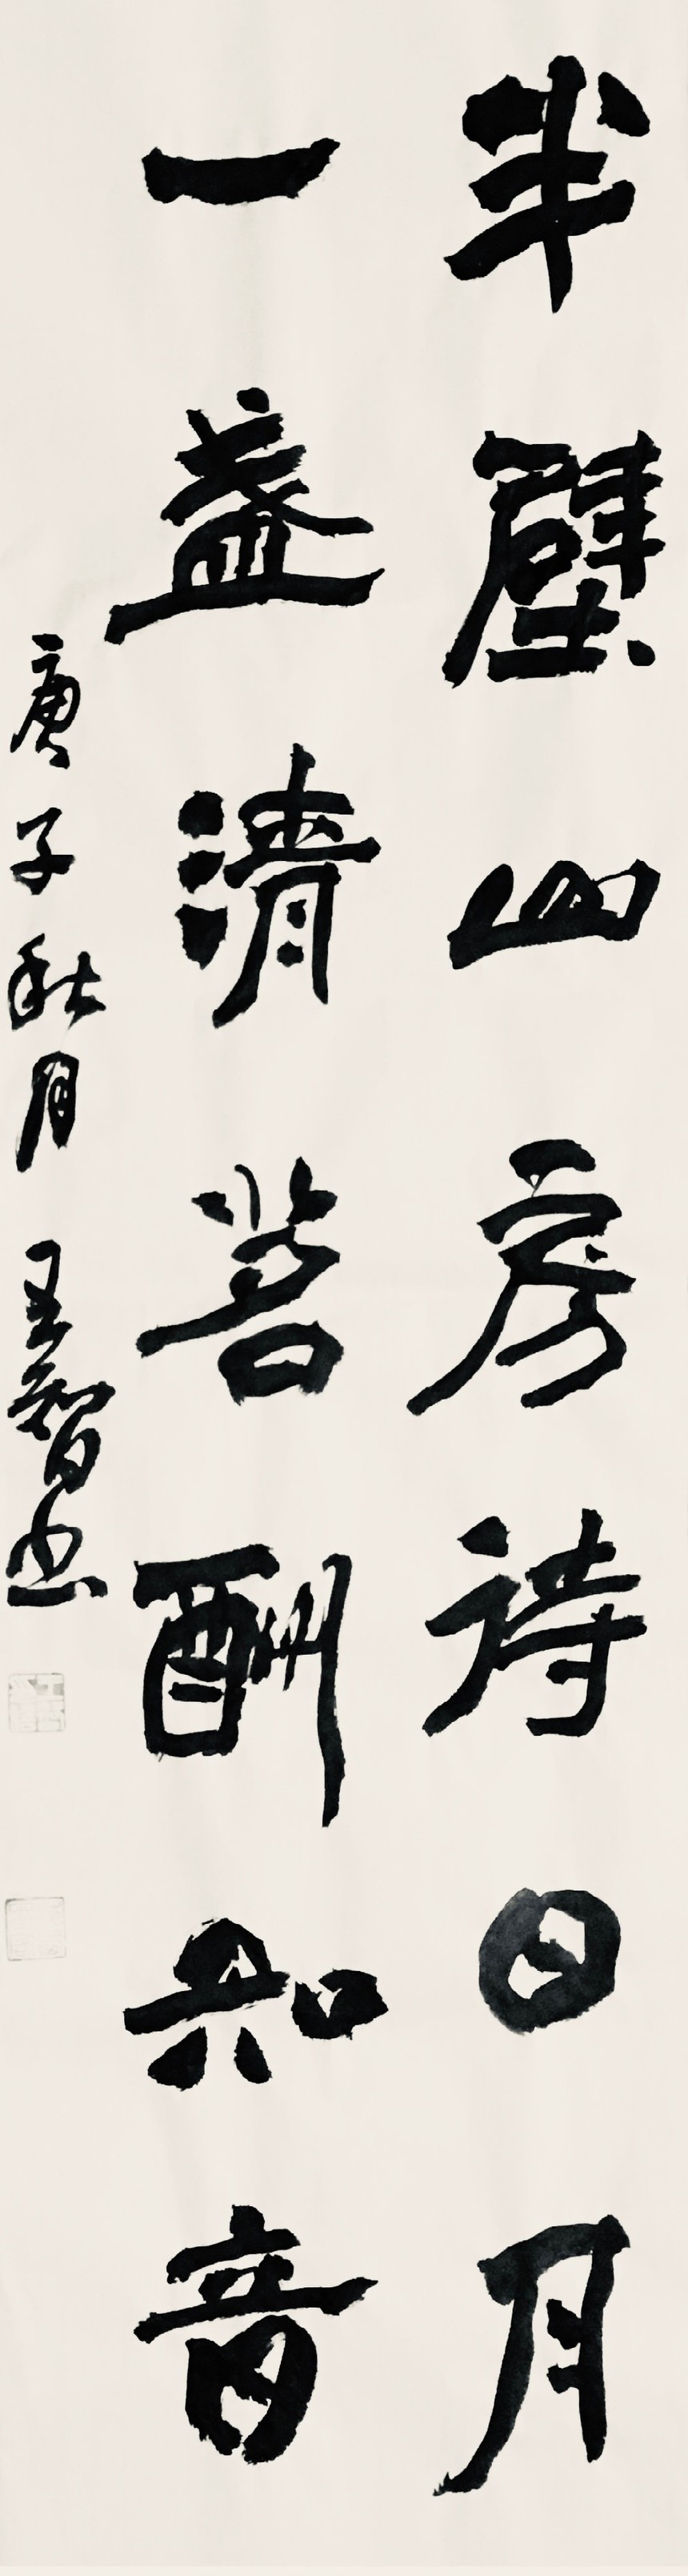 半壁山房詩日月
一盞清茗酬知音
庚子秋月 王智書